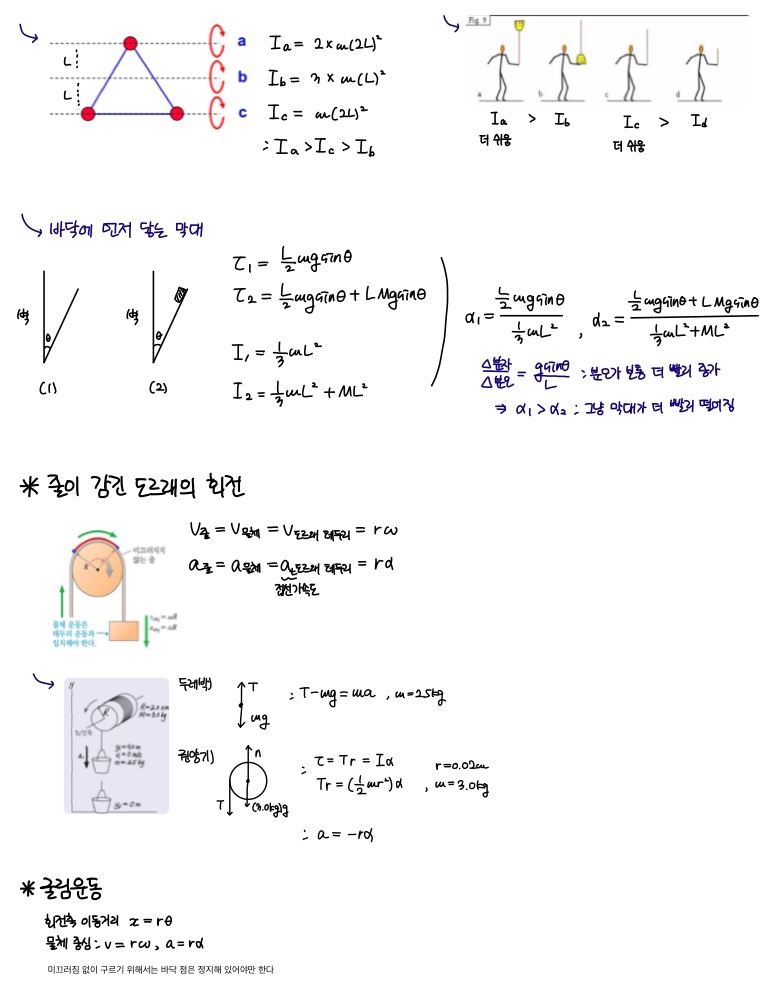 L
L
a
b
c
I_a = 2 × m(2L)²
I_b = 3 × m(L)²
I_c = m(2L)²
∴ I_a > I_c > I_b
Fig 9
a b c d
I_a > I_b I_c > I_d
더 쉬움 더 쉬움
바닥에 먼저 닿는 막대
벽 θ
(1)
벽 θ
(2)
τ₁ = L/2 mg sinθ
τ₂ = L/2 mg sinθ + L Mg sinθ
I₁ = 1/3 mL²
I₂ = 1/3 mL² + ML²
α₁ = (L/2 mg sinθ) / (1/3 mL²) , α₂ = (L/2 mg sinθ + L Mg sinθ) / (1/3 mL² + ML²)
△분자/△분모 = g sinθ/L : 분모가 보통 더 빨리 증가
⇒ α₁ > α₂ : 그냥 막대가 더 빨리 떨어짐
* 줄이 감긴 도르래의 회전
미끄러지지
않는 줄
R
물체 운동은
테두리 운동과
일치해야 한다.
V줄 = V물체 = V도르래 테두리 = rω
a줄 = a물체 = a_t,도르래 테두리 = rα
접선가속도
y
R
회전축
a
y₀=0m
두레박)
T
mg
: T - mg = ma , m = 2.5kg
원양기)
n
T
(3.0kg)g
: τ = Tr = Iα
Tr = (1/2 mr²)α , r = 0.02m
m = 3.0kg
∴ a = -rα
* 굴림운동
회전축 이동거리 x = rθ
물체 중심 : v = rω, a = rα
미끄러짐 없이 구르기 위해서는 바닥 점은 정지해 있어야만 한다